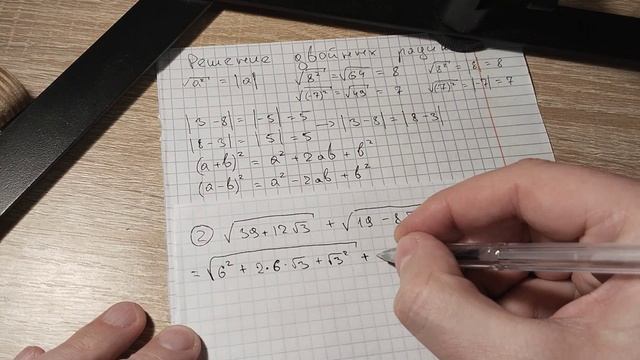 Решение двойных
√a² = |a| √8² = √64 = 8 √8² = 8 = 8
√(-7)² = √49 = 7 √(-7)² = |-7| = 7
|3-8| = |-5| = 5 → |3-8| = |8-3|
|8-3| = |5| = 5
(a+b)² = a² + 2ab + b²
(a-b)² = a² - 2ab + b²
② √39+12√3 + √19-8
= √6² + 2·6·√3 + √3² +